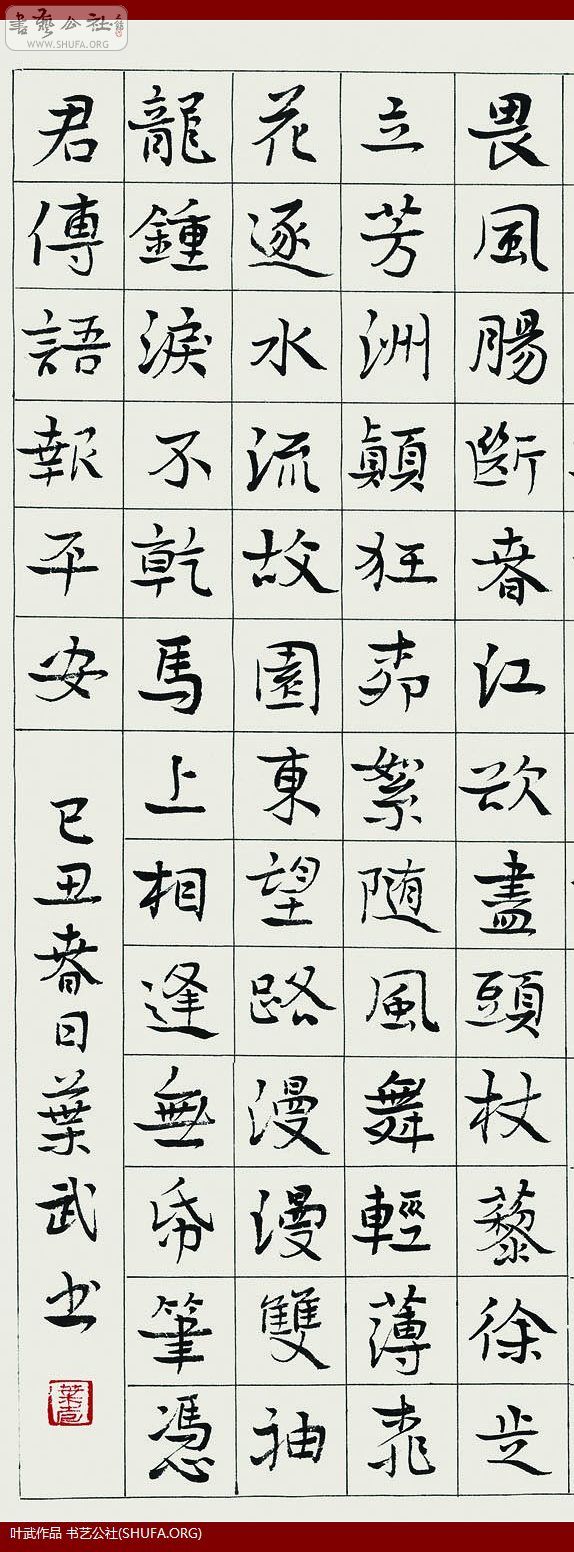 書藝公社
WWW.SHUFA.ORG
畏風腸斷春江欲盡頭杖藜徐步
立芳洲顛狂柳絮随風舞輕薄桃
花逐水流故園東望路漫漫雙袖
龍鍾淚不乾馬上相逢無帋筆憑
君傳語報平安
己丑春日葉武书
叶武作品 书艺公社(SHUFA.ORG)